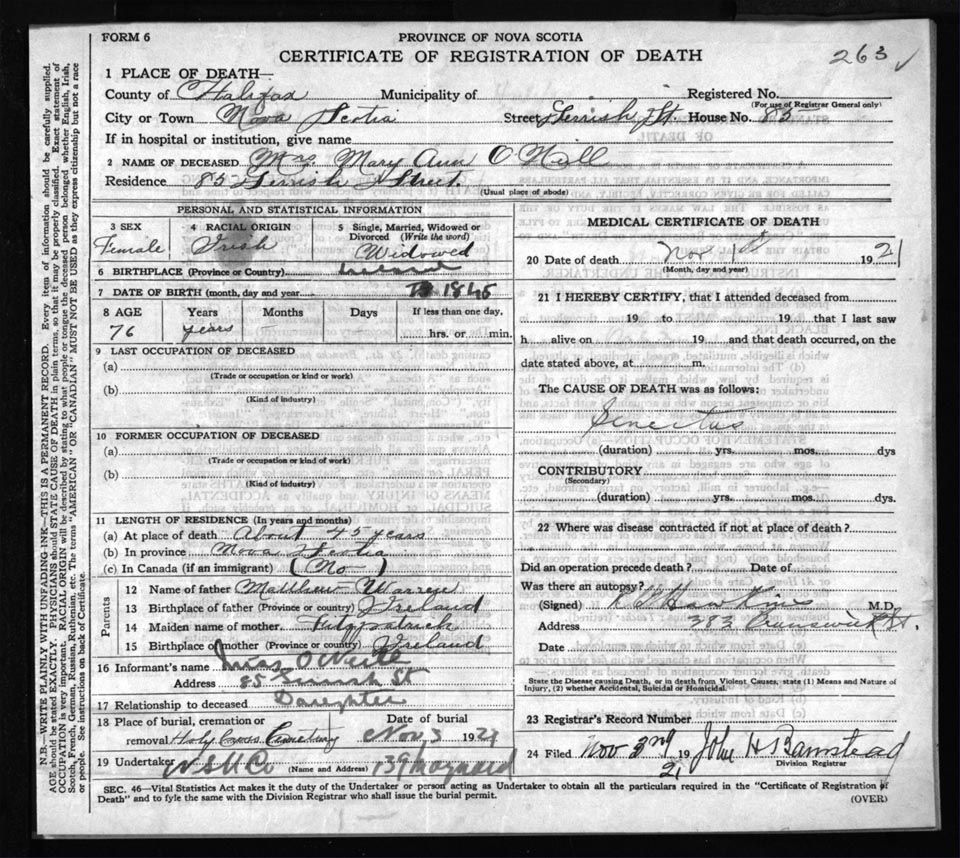 FORM 6
PROVINCE OF NOVA SCOTIA
CERTIFICATE OF REGISTRATION OF DEATH
263 ✓
1 PLACE OF DEATH—
County of Halifax Municipality of Registered No.
(For use of Registrar General only)
City or Town Nova Scotia Street Gerrish St. House No. 85
If in hospital or institution, give name
2 NAME OF DECEASED Mrs. Mary Ann O'Neill
Residence 85 Gerrish Street.
(Usual place of abode)
PERSONAL AND STATISTICAL INFORMATION
3 SEX Female
4 RACIAL ORIGIN Irish
5 Single, Married, Widowed or Divorced (Write the word) Widowed
6 BIRTHPLACE (Province or Country) Ireland
7 DATE OF BIRTH (month, day and year) 1845
8 AGE Years Months Days If less than one day,
76 years hrs. or min.
9 LAST OCCUPATION OF DECEASED
(a)
(Trade or occupation or kind or work)
(b)
(Kind of industry)
10 FORMER OCCUPATION OF DECEASED
(a)
(Trade or occupation or kind of work)
(b)
(Kind of industry)
11 LENGTH OF RESIDENCE (In years and months)
(a) At place of death About 45 years
(b) In province Nova Scotia
(c) In Canada (if an immigrant) (No)
Parents
12 Name of father Matthew Warren
13 Birthplace of father (Province or country) Ireland
14 Maiden name of mother Fitzpatrick
15 Birthplace of mother (Province or country) Ireland
16 Informant's name Miss O'Neill
Address 85 Gerrish St
17 Relationship to deceased Daughter
18 Place of burial, cremation or removal Holy Cross Cemetery
Date of burial Nov 3 1921
19 Undertaker N S U Co (Name and Address) 139 Maynard
MEDICAL CERTIFICATE OF DEATH
20 Date of death Nov 1st 1921
(Month, day and year)
21 I HEREBY CERTIFY, that I attended deceased from
19 to 19 that I last saw
h alive on 19 and that death occurred, on the
date stated above, at m.
The CAUSE OF DEATH was as follows:
Senectus
(duration) yrs. mos. dys
CONTRIBUTORY
(Secondary)
(duration) yrs. mos. dys.
22 Where was disease contracted if not at place of death?
Did an operation precede death? Date of
Was there an autopsy?
(Signed) Hawkins M.D.
Address 383 Brunswick St.
Date
State the Disease causing Death, or in death from Violent Causes, state (1) Means and Nature of
Injury, (2) whether Accidental, Suicidal or Homicidal.
23 Registrar's Record Number
24 Filed Nov 3rd 1921 John H S Barnstead
Division Registrar
SEC. 46—Vital Statistics Act makes it the duty of the Undertaker or person acting as Undertaker to obtain all the particulars required in the "Certificate of Registration of
Death" and to fyle the same with the Division Registrar who shall issue the burial permit.
(OVER)
N.B.—WRITE PLAINLY WITH UNFADING INK—THIS IS A PERMANENT RECORD. Every item of information should be carefully supplied.
AGE should be stated EXACTLY. PHYSICIANS should STATE CAUSE OF DEATH in plain terms, so that it may be properly classified. Exact statement of
OCCUPATION is very important. RACIAL ORIGIN will be described by stating to what people or tongue the deceased person belonged whether English, Irish,
Scotch, French, German, Russian, Ruthenian, etc. The terms "AMERICAN" OR "CANADIAN" MUST NOT BE USED as they express citizenship but not a race
or people. See instructions on back of Certificate.